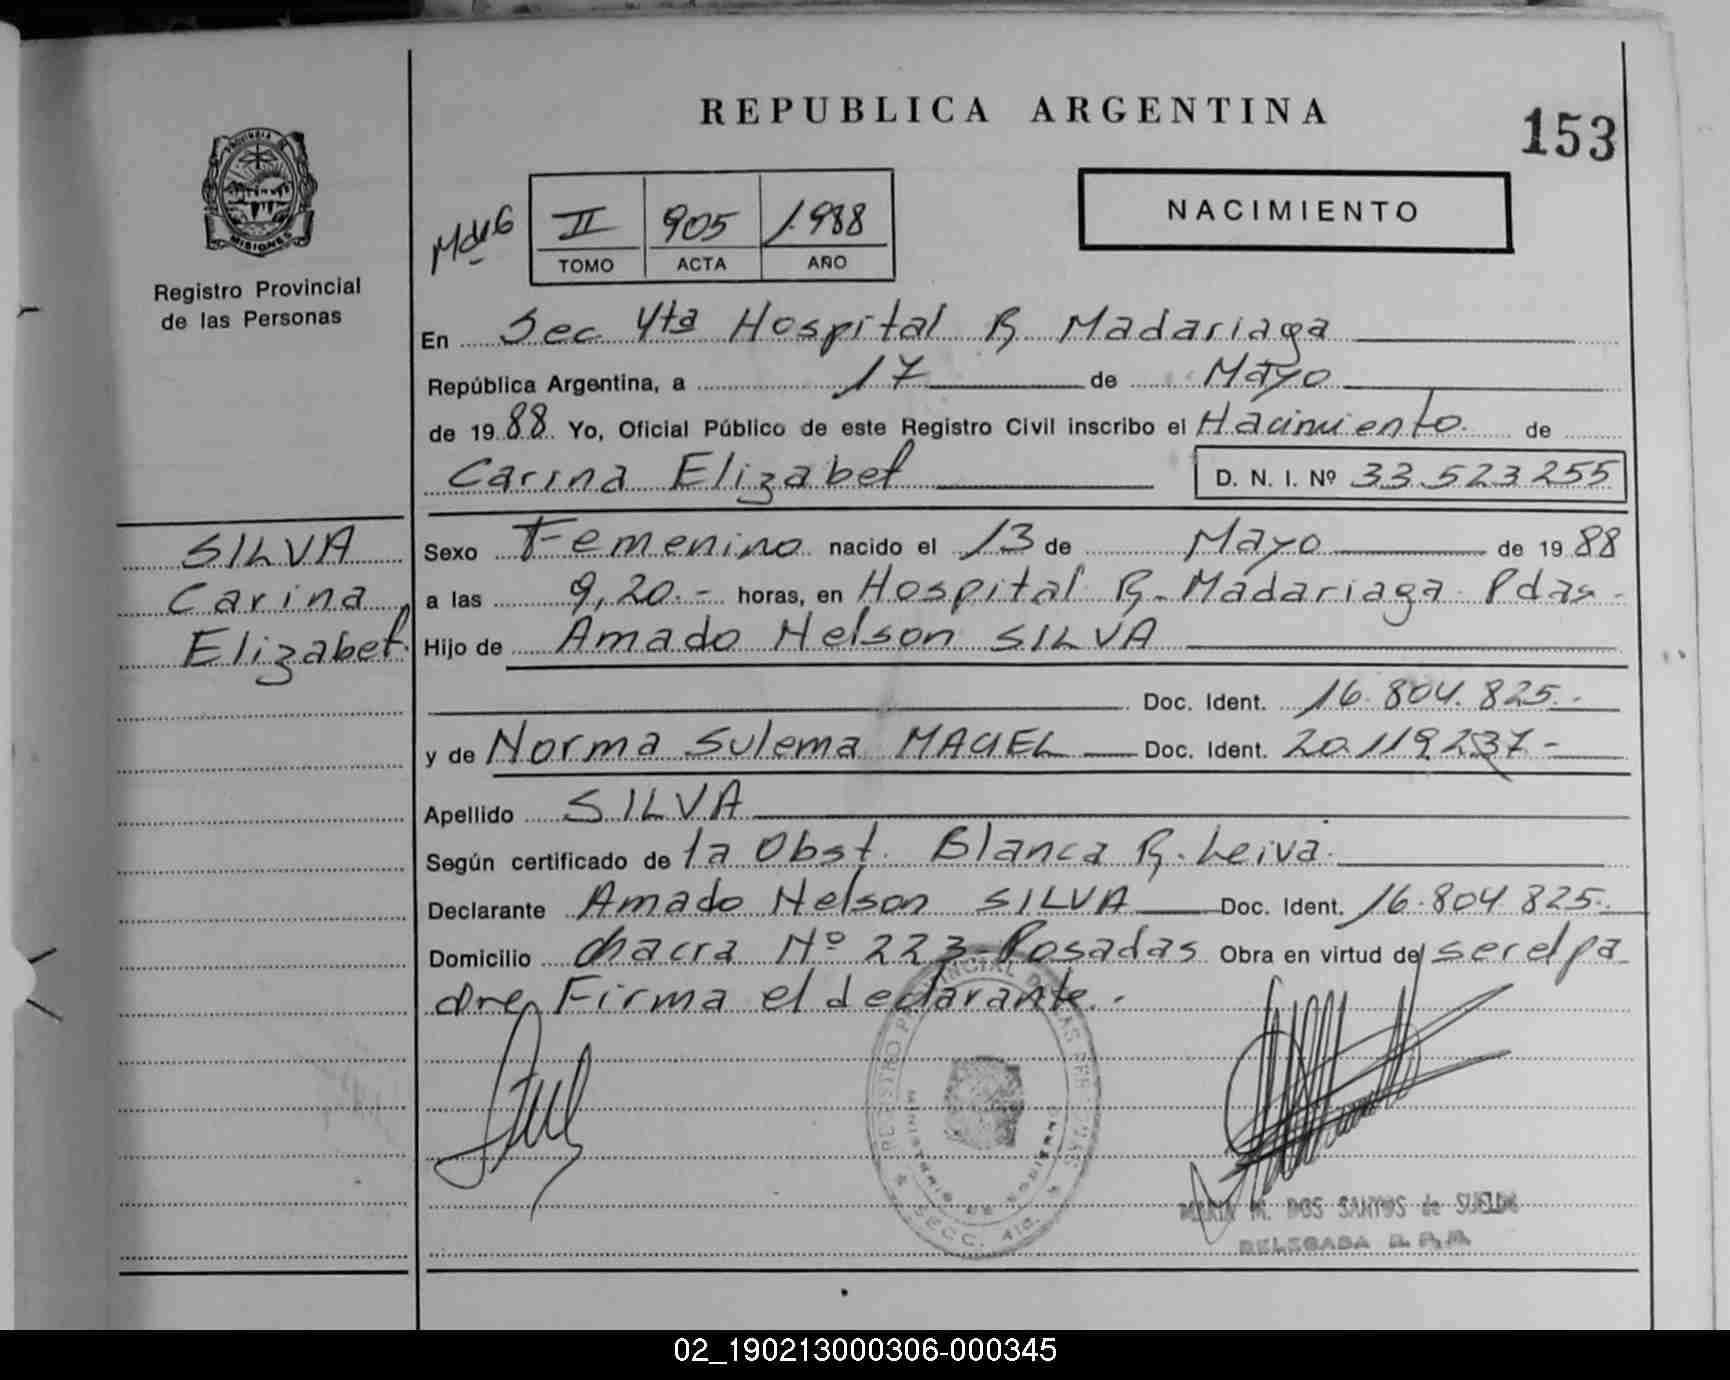 REPUBLICA ARGENTINA
153
PROVINCIA DE
MISIONES
Registro Provincial
de las Personas
II 905 1.988
TOMO ACTA AÑO
NACIMIENTO
En Sec 4ta Hospital R. Madariaga
República Argentina, a 17 de Mayo
de 1988 Yo, Oficial Público de este Registro Civil inscribo el Nacimiento de
Carina Elizabet D. N. I. Nº 33.523.255
SILVA
Carina
Elizabet
Sexo Femenino nacido el 13 de Mayo de 1988
a las 9,20.- horas, en Hospital R. Madariaga Pdas-
Hijo de Amado Nelson SILVA
Doc. Ident. 16.804.825.-
y de Norma Sulema MACIEL Doc. Ident. 20.119.237-
Apellido SILVA
Según certificado de la Obst. Blanca R. Leiva.
Declarante Amado Nelson SILVA Doc. Ident. 16.804.825.
Domicilio chacra Nº 223-Posadas Obra en virtud de ser el pa
dre, Firma el declarante.-
REGISTRO PROVINCIAL DE LAS PERSONAS
MINISTERIO DE GOBIERNO
SECC. 4ta.
MARIA M. DOS SANTOS de SUELDO
DELEGADA R. P. P.
02_190213000306-000345